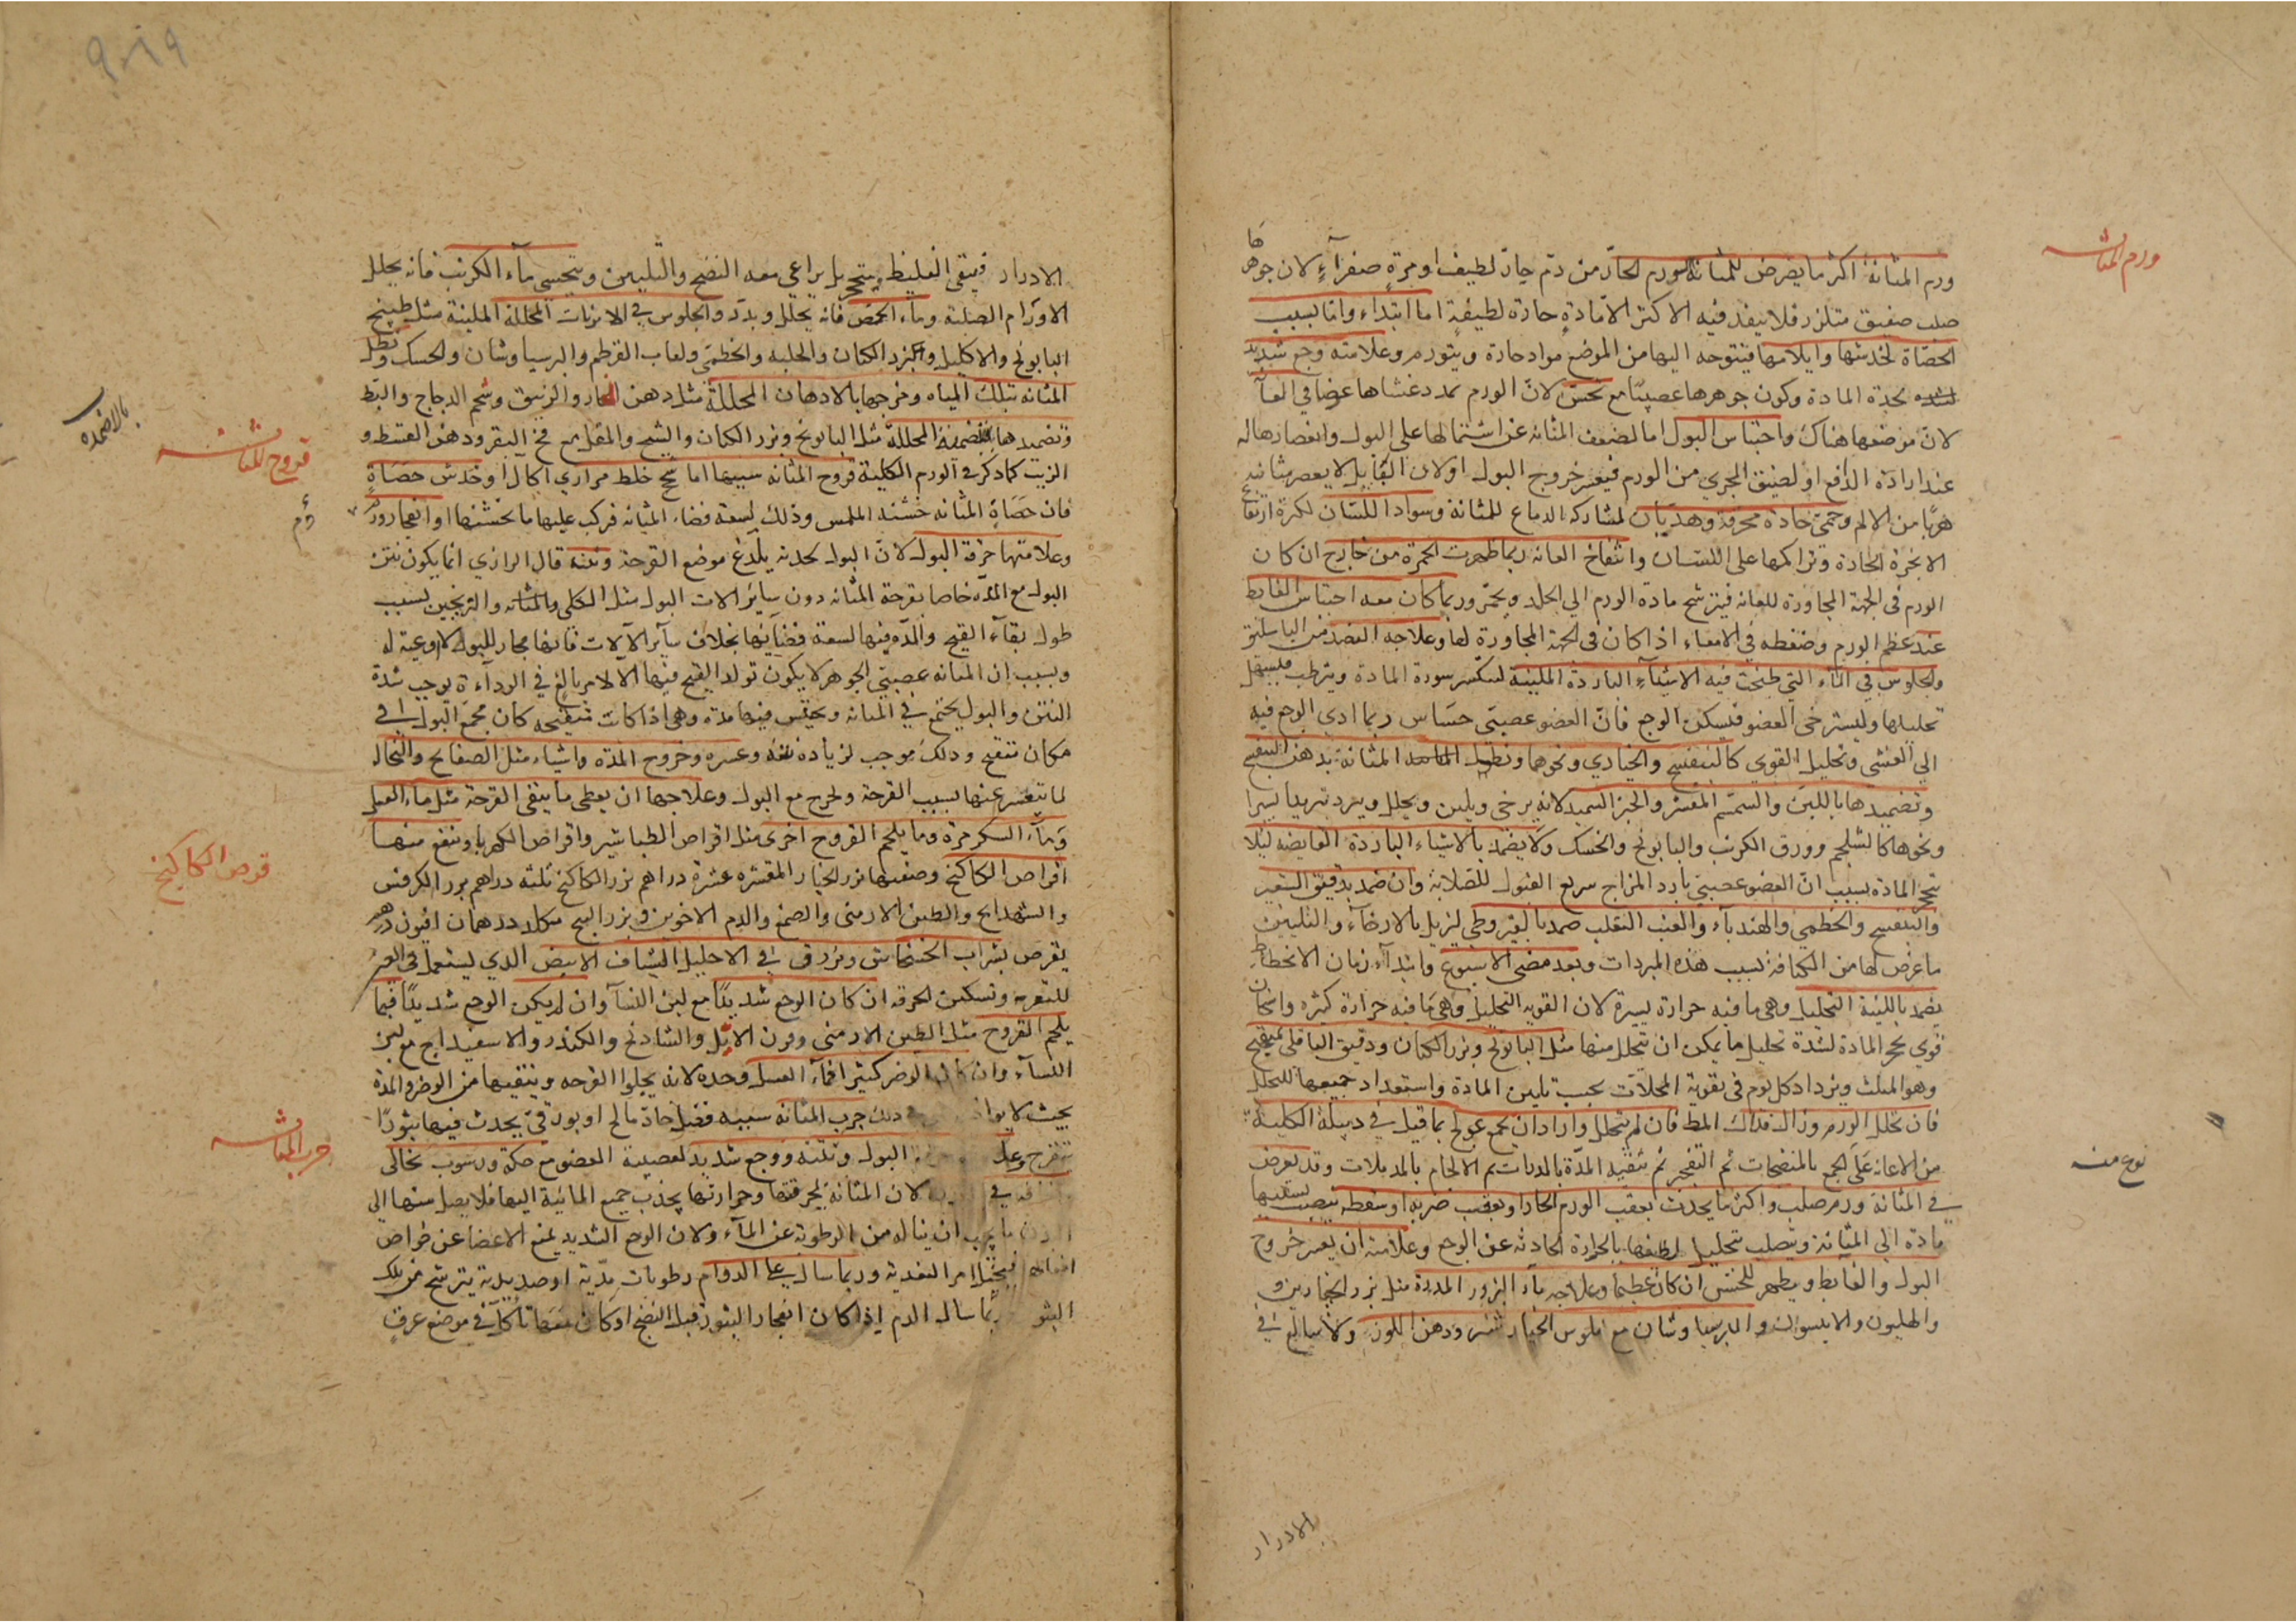 ورم المثانة
ورم المثانة اكثر ما يعرض للمثانة الورم الحار من دم حاد لطيف او مرة صفراء لان جوهرها
صلب صفيق متلزز فلا ينفذ فيه الاكثر الا مادة حادة لطيفة اما ابتداء واما بسبب
الحصاة لخدشها وايلامها فتتوجه اليها من الموضع مواد حادة ويتورم وعلامته وجع شديد
لحدة المادة وكون جوهرها عصبيا مع نخس لان الورم يمدد غشاها عرضا في العانة
لان موضعها هناك واحتباس البول اما لضعف المثانة عن اشتمالها على البول وانعصارها له
عند ارادة الدفع او لضيق المجري من الورم فيعسر خروج البول اولان العليل لا يعصر مثانته
هربا من الالم وحمى حادة محرقة وهذيان لمشاركة الدماغ للمثانة وسواد اللسان لكثرة ارتفاع
الابخرة الحادة وتراكمها على اللسان وانتفاخ العانة ربما ظهرت الحمرة من خارج ان كان
الورم في الجهة المجاورة للعانة فيترشح مادة الورم الى الجلد ويحمر وربما كان معه احتباس الغايط
عند عظم الورم وضغطه في الامعاء اذا كان في الجهة المجاورة لها وعلاجه الفصد من الباسليق
والجلوس في الماء التي طبخت فيه الاشياء الباردة الملينة لتنكسر سورة المادة ويترطب فيسهل
تحليلها وليسترخي العضو فيسكن الوجع فان العضو عصبي حساس ربما ادي الوجع فيه
الي الغشي وتحليل القوي كالبنفسج والخبازي ونحوها ونطول المثانة بدهن البنفسج
وتضميدها باللبن والسمسم المقشر والخبز السميد لانه يرخي ويلين ويحلل ويبرد تبريدا يسيرا
ونحوها كالشلجم وورق الكرنب والبابونج والحسك ولا يضمد بالاشياء الباردة القابضة ليلا
تتحجر المادة بسبب ان العضو عصبي بارد المزاج سريع القبول للصلابة وان ضمد بدقيق الشعير
والبنفسج والخطمي والهندباء والعنب الثعلب ضمد بالقيروطي ليزيل بالارخاء والتليين
ما عرض لها من الكثافة بسبب هذه المبردات وبعد مضي الاسبوع وابتداء زمان الانحطاط
يضمد باللينة التحليل وهي ما فيه حرارة يسيرة لان القوية التحليل وهي ما فيه حرارة كثيرة واسخان
قوي يحجر المادة لشدة تحليل ما يمكن ان يتحلل منها مثل البابونج وبزر الكتان ودقيق الباقلى بميفختج
وهو المثلث ويزداد كل يوم في تقوية المحللات بحسب تليين المادة واستعداد جميعها للتحلل
فان تحلل الورم وزال فذاك المط فان لم يتحلل وارادان يجمع عولج بما قيل في دبيلة الكلية
من الاعانة على الجمع بالمنضجات ثم التفجير ثم تنقية المدة بالمدرات ثم الالحام بالمدملات وقد يعرض
نوع منه
في المثانة ورم صلب واكثر ما يحدث بعقب الورم الحار او بعقب ضربة او سقطة ينصب بسببها
مادة الى المثانة ويتصلب بتحليل لطيفها بالحرارة الحادثة عن الوجع وعلامته ان يعسر خروج
البول والغايط ويظهر للحس ان كان عظيما وعلاجه ماء البزور المدرة مثل بزر الخيارين و
والهليون والانيسون والبرسياوشان مع فلوس الخيار شنبر ودهن اللوز ولا يبالغ في
الادرار
الادرار فيبقى الغليظ ويتحجر بل يراعي معه النضج والتليين ويتحسى ماء الكرنب فانه يحلل
الاورام الصلبة وماء الحمص فانه يحلل ويدر والجلوس في الابزنات المحللة الملينة مثل طبيخ
البابونج والاكليل والبزر الكتان والحلبة والخطمي ولعاب القرطم والبرسياوشان والحسك ونطل
المثانة بتلك المياه ومرخها بالادهان المحللة مثل دهن الغار والزنبق وشحم الدجاج والبط
بالاضمدة
وتضميدها المحللة مثل البابونج وبزر الكتان والشبح والمقل مع مخ البقر ودهن القسط و
قروح المثانة
الزيت كما ذكر في الورم الكلية قروح المثانة سببها اما سحج خلط مراري اكال او خدش حصاة
فان حصاة المثانة خشنة الملمس وذلك لسعة فضاء المثانة فركب عليها ما يخشنها او انفجار ورم
وعلامتها حرقة البول لان البول لحدته يلدغ موضع القرحة ونتنه قال الرازي انما يكون نتن
البول مع المدة خاصا بقرحة المثانة دون سائر الات البول مثل الكلى والبربخين بسبب
طول بقاء القيح والمدة فيها لسعة فضائها بخلاف سائر الآلات فانها مجار للبول لا اوعية له
وبسبب ان المثانة عصبي الجوهر لا يكون تولد القيح فيها الا لامر بالغ في الرداءة يوجب شدة
النتن والبول يجتمع في المثانة ويحتبس فيها مدة وهي اذا كانت متقيحة كان مجمع البول في
مكان متقيح وذلك موجب لزيادة نتنه وعسره وخروج المدة واشياء مثل الصفايح والنخالة
لما يتقشر عنها بسبب القرحة ويخرج مع البول وعلاجها ان يعطى ما ينقى القرحة مثل ماء العسل
وماء السكر مرة وما يلحم القروح اخرى مثل اقراص الطباشير واقراص الكهربا وينفع منها
قرص الكاكنج
اقراص الكاكنج وصفتها بزر الخيار المقشر عشرة دراهم بزر الكاكنج ثلثة دراهم بزر الكرفس
والشهدانج والطين الارمني والصمغ والدم الاخوين وبزر البنج مكلا درهمان افيون درهم
يقرص بشراب الخشخاش ويزرق في الاحليل الشياف الابيض الذي يستعمل في العين
للتغرية وتسكين الحرقة ان كان الوجع شديدا مع لبن النسآ وان لم يكن الوجع شديدا فبما
يلحم القروح مثل الطين الارمني وقرن الايل والشاذنج والكندر والاسفيداج مع لبن
النسآء وان كان الوضر كثيرا فماء العسل وحده لانه يجلوا القرحة وينقيها من الوضر والمدة
جرب المثانة
بحيث لا ذلك جرب المثانة سببه فضل حاد مالح او بورقي يحدث فيها بثورا
تتقرح البول ونتنه ووجع شديد لعصبية العضو مع حكة ورسوب نخالي
في لان المثانة لحرقتها وحرارتها يجذب جميع المائية اليها فلا يصل منها الي
ما يجب ان يناله من الرطوبة عن المآء ولان الوجع الشديد يمنع الاعضا عن خواص
افعالها فيختل امر التغذية وربما سال على الدوام رطوبات مدية او صديدية يترشح من تلك
سال الدم اذا كان انفجار البثور قبل النضج او كان معها تاكل في موضع عرق